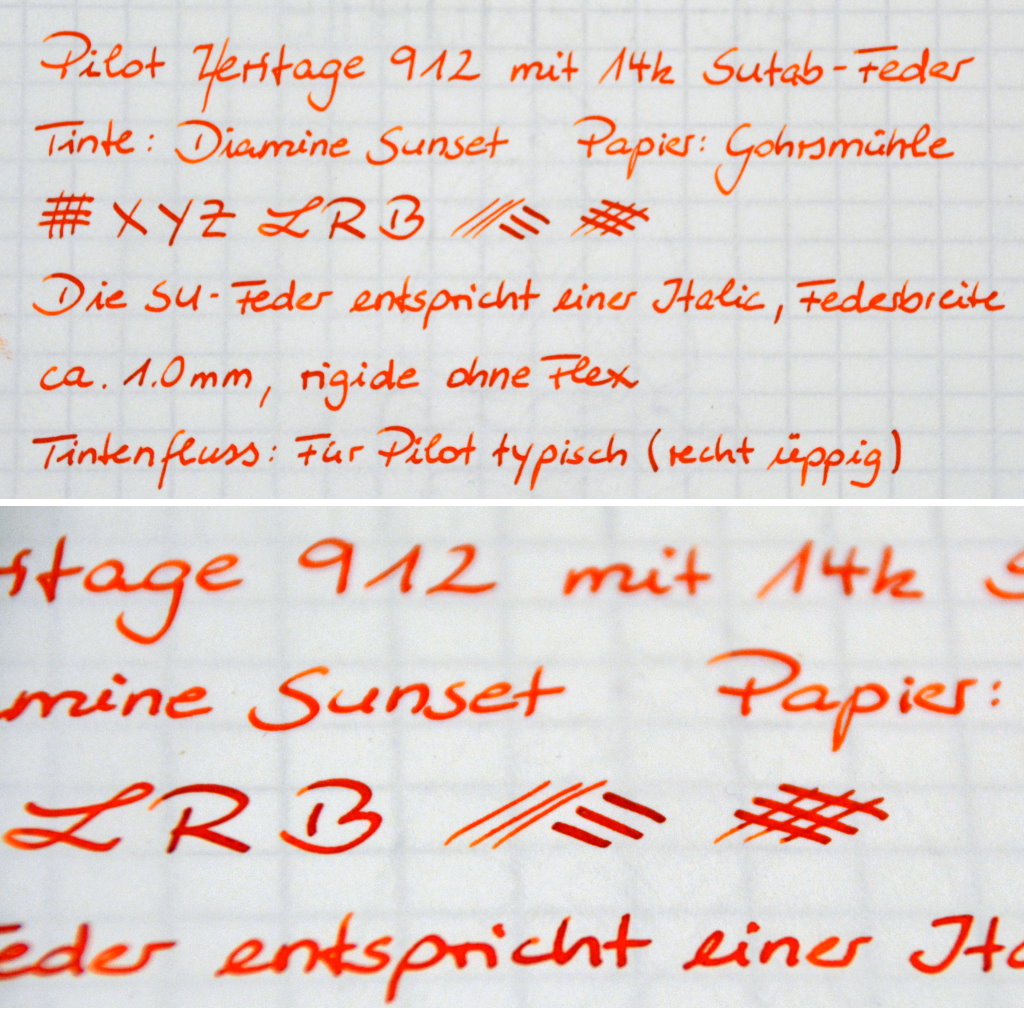 Pilot Heritage 912 mit 14k Sutab-Feder
Tinte: Diamine Sunset Papier: Gohrsmühle
X Y Z L R B
Die SU-Feder entspricht einer Italic, Federbreite
ca. 1.0mm, rigide ohne Flex
Tintenfluss: Für Pilot typisch (recht üppig)
ritage 912 mit 14k S
mine Sunset Papier:
L R B
Feder entspricht einer Ita